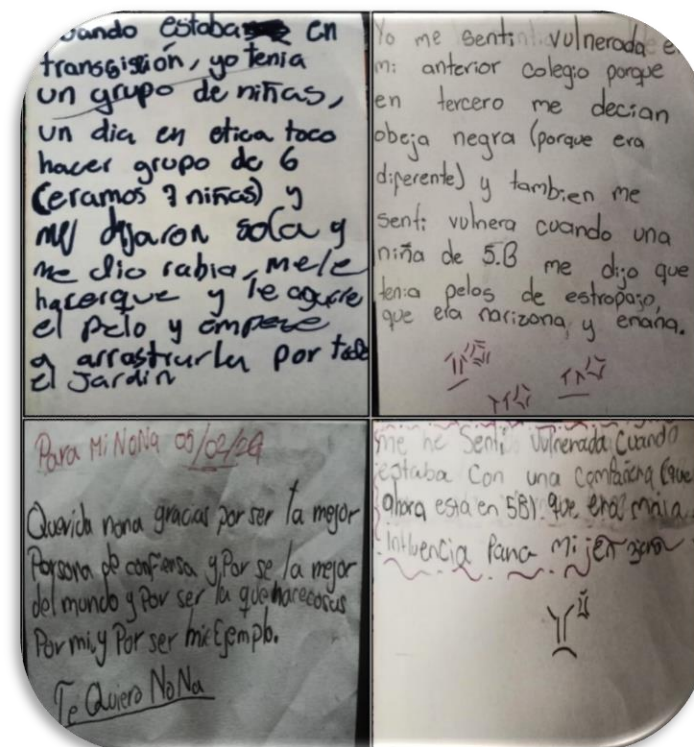 uando estaba en
transgisión, yo tenia
un grupo de niñas,
un dia en etica toco
hacer grupo de 6
(eramos 7 niñas) y
me dejaron sola y
me dio rabia, mele
hacerque y le agarre
el pelo y empece
a arrastrarla por todo
el Jardin
Yo me senti vulnerada e
mi anterior colegio porque
en tercero me decian
obeja negra (porque era
diferente) y tambien me
senti vulnera cuando una
niña de 5.B me dijo que
tenia pelos de estropajo,
que era narizona, y enana.
Para Mi NONA 05/02/24
Querida nona gracias por ser la mejor
Persona de confiensa y Por se la mejor
del mundo y Por ser la que hare cosas
Por mi, y Por ser mi Ejemplo.
Te Quiero NoNa
me he Senti vulnerada cuando
estaba con una compañera (que
ahora esta en 5B). que era mala
Influencia Para mi en